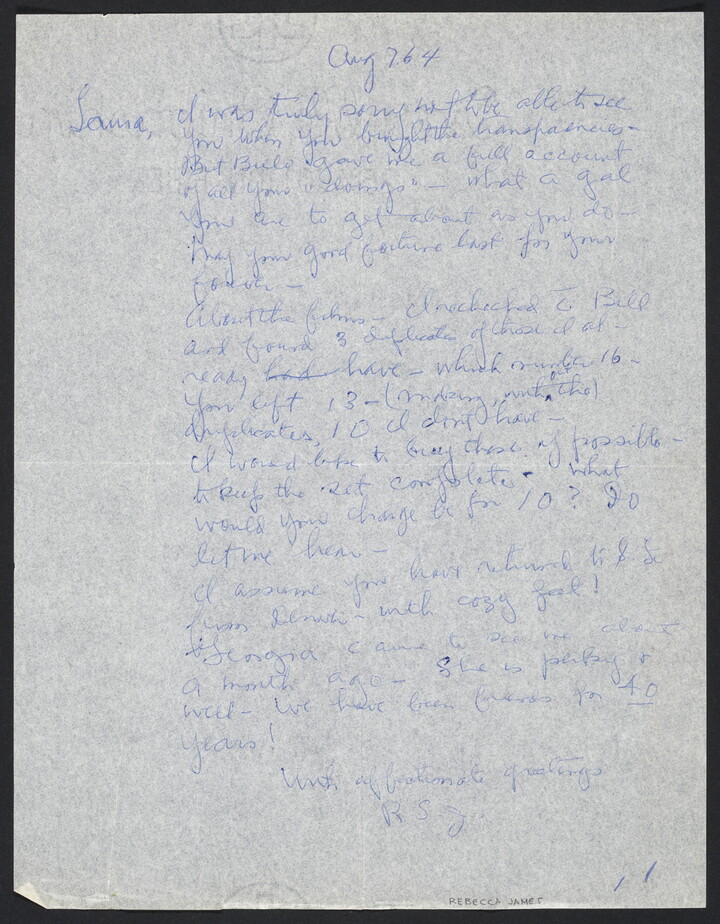 Aug 7 64
Laura, I was truly sorry not to be able to see
you when you brought the transparencies -
But Bill gave me a full account
of all your "doings" - what a gal
you are to get about as you do -
May your good fortune last for your
forever -
About the films - I rechecked c̄ Bill
and found 3 duplicates of those I al-
ready had have - which number 16 -
You left 13 - (making, without the)
duplicates, 10 I don't have -
I would like to buy these if possible -
to keep the set complete - What
would you charge me for 10? Do
let me hear -
I assume you have returned to S Fe
from Denver - with cozy feet!
Georgia came to see me about
a month ago - She is perky &
well - We have been friends for 40
years!
With affectionate greetings
R S J.
REBECCA JAMES